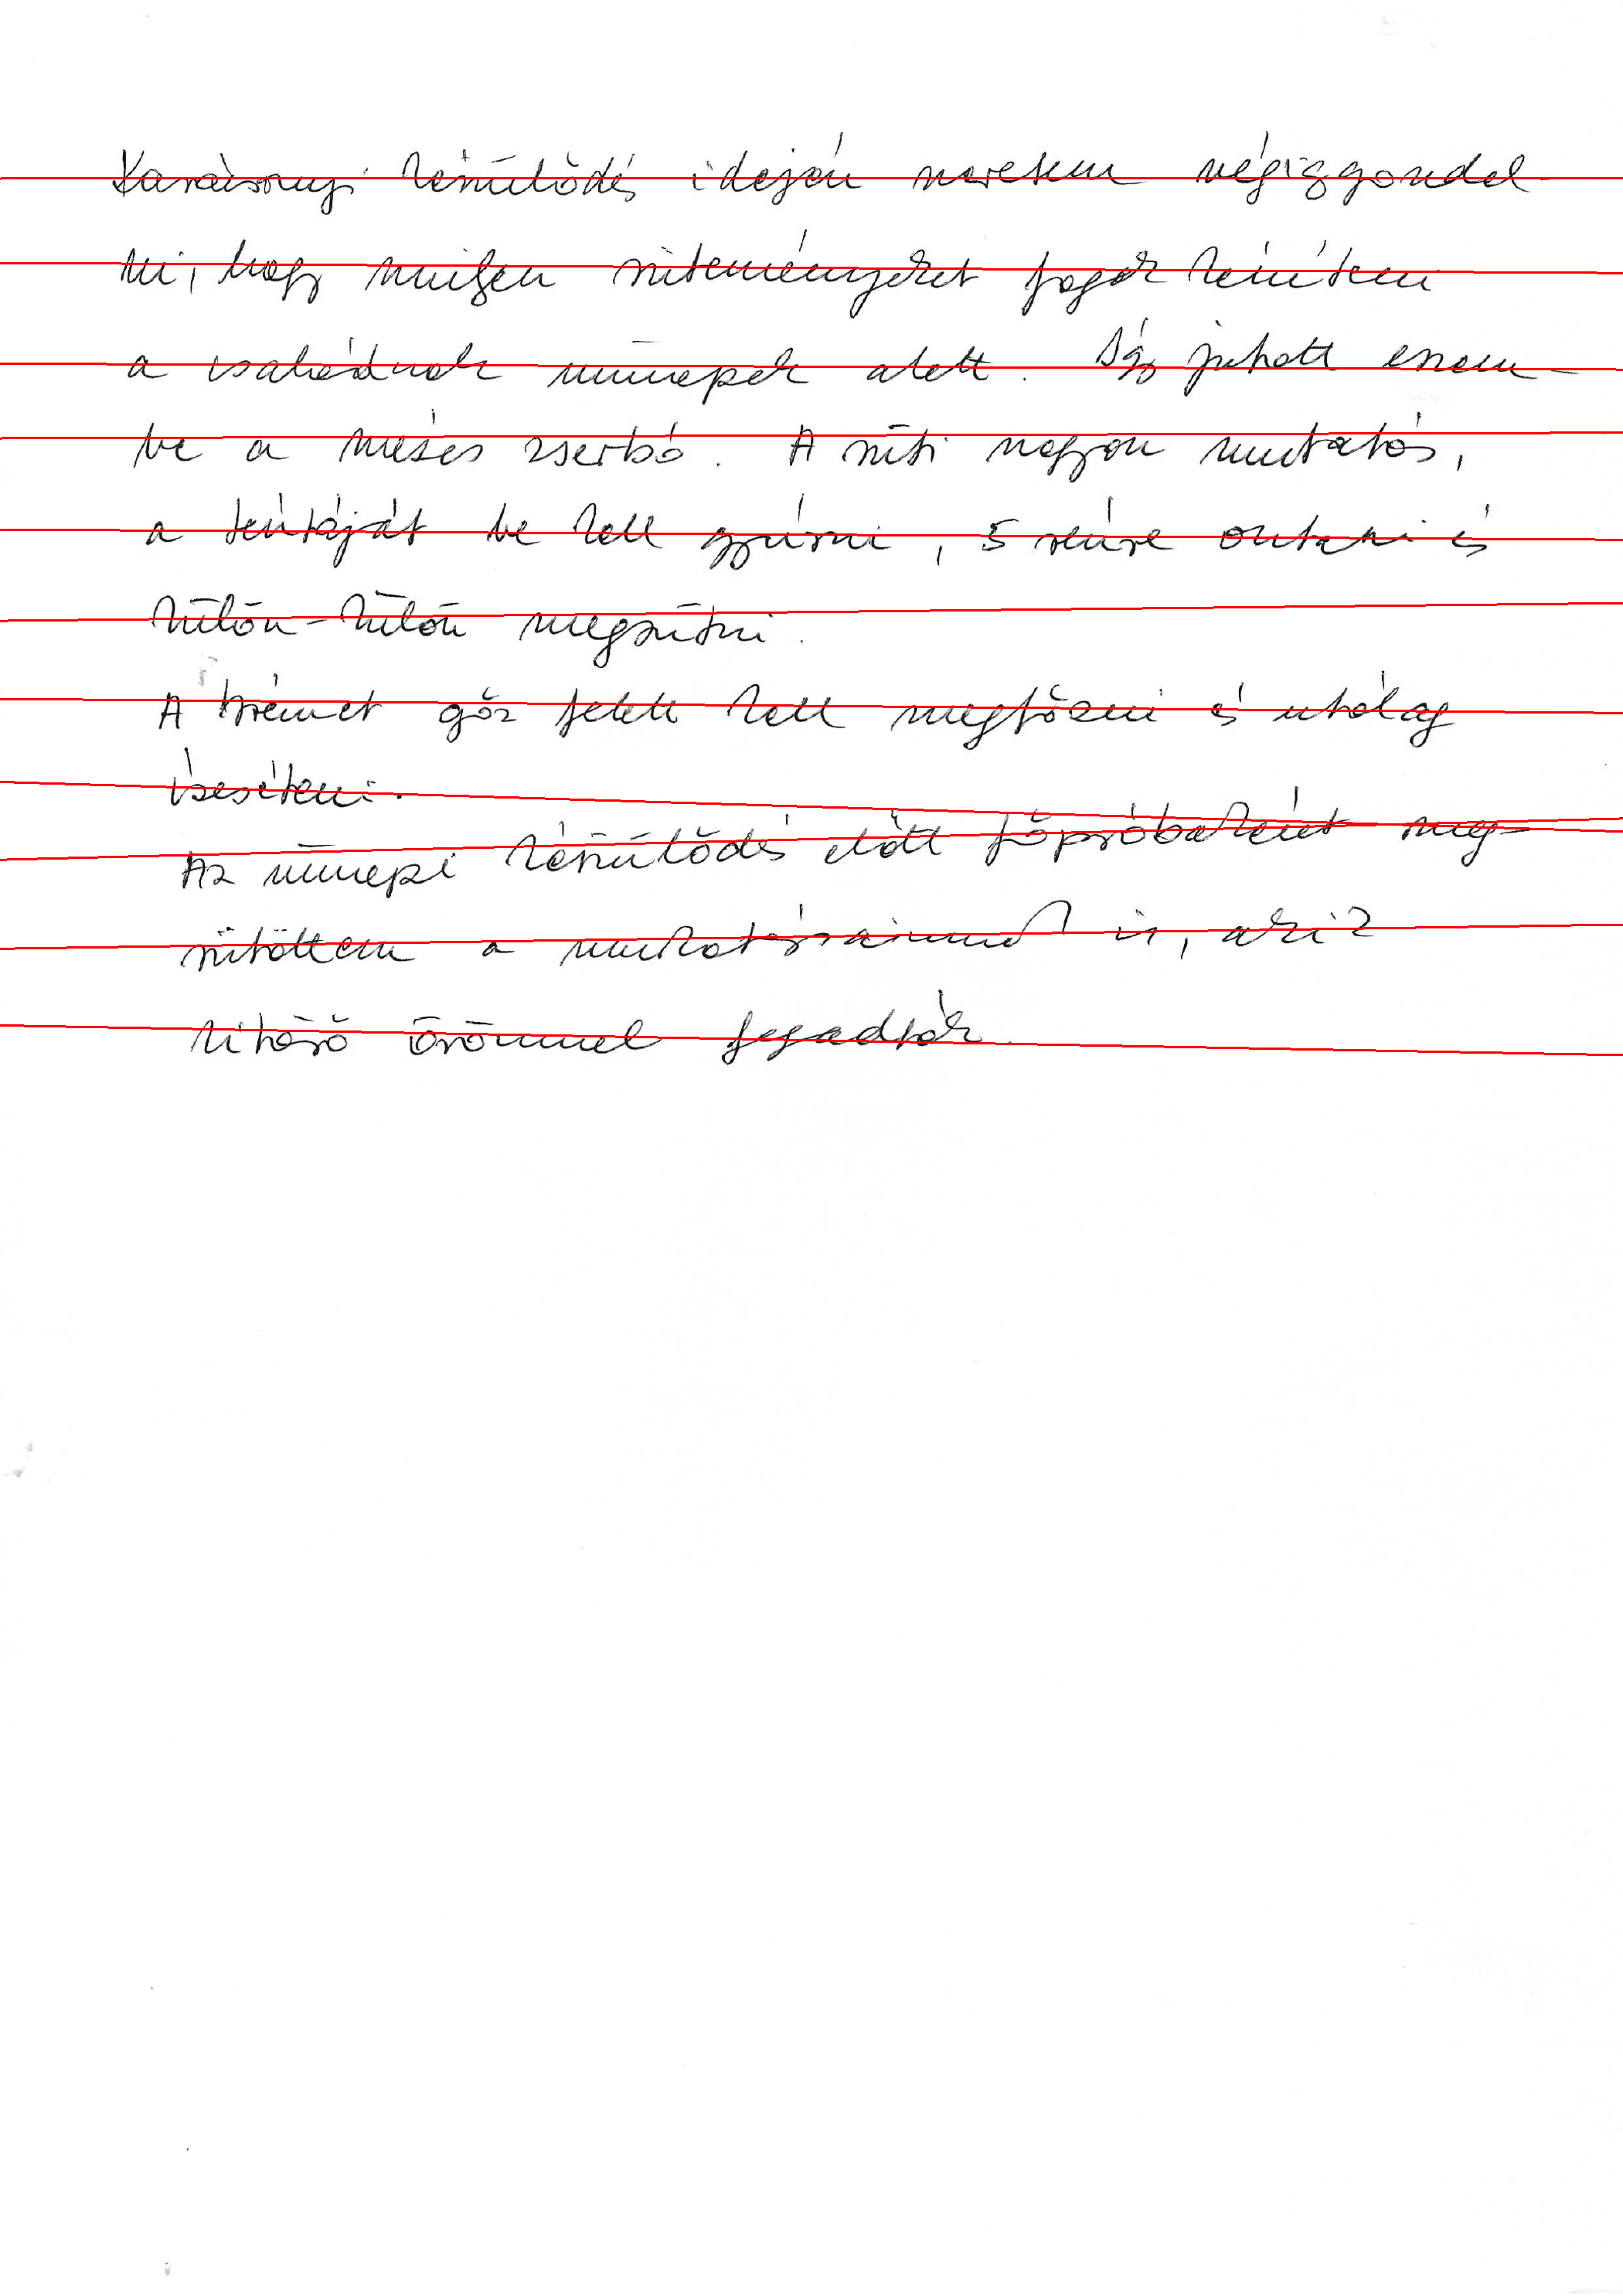 Karácsonyi készülődés idején szeretem végiggondol
ni, hogy milyen süteményeket fogok készíteni
a családnak ünnepek alatt. Így jutott eszem-
be a mézes zserbó. A süti nagyon mutatós,
a tésztáját be kell gyúrni, 5 részre osztani és
külön-külön megsütni.
A krémet gőz felett kell megfőzni és utólag
ízesíteni.
Az ünnepi készülődés előtt főpróbaként meg-
sütöttem a munkatársaimnak is, akik
kitörő örömmel fogadták.